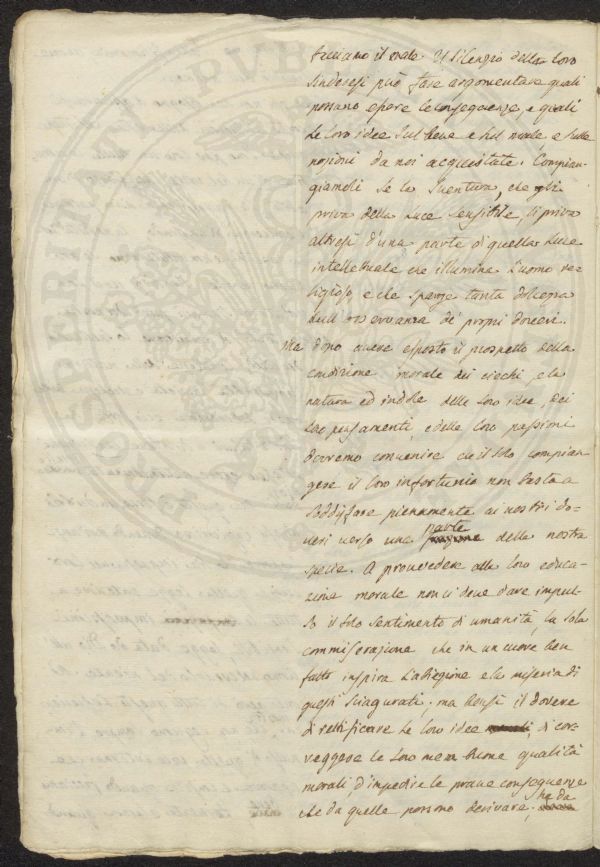 facciano il male. Il silenzio della loro
sinderesi può fare argomentare quali
possano essere le conseguenze, e quali
le loro idee sul bene e sul male, e sulle
nozioni da noi acquistate. Compian-
giamoli se la sventura, che gli
priva della luce sensibile, li priva
altresì d'una parte di quella luce
intellettuale che illumina l'uomo re-
ligioso, e che sparge tanta dolcezza
sull'osservanza de' proprj doveri.
Ma dopo avere esposto il prospetto della
condizione morale dei ciechi, e la
natura ed indole delle loro idee, dei
loro pensamenti, e delle loro passioni
dovremo convenire che il solo compian-
gere il loro infortunio non basta a
soddisfare pienamente ai nostri do-
veri verso una parte della nostra
specie. A provvedere alla loro educa-
zione morale non ci deve dare impul-
so il solo sentimento di umanità, la sola
commiserazione che in un cuore ben
fatto inspira l'abiezione e la miseria di
questi sciagurati; ma bensì il dovere
di rettificare le loro idee morali, di cor-
reggere le loro men buone qualità
morali d'impedire le prave conseguenze
che da quelle possono derivare,